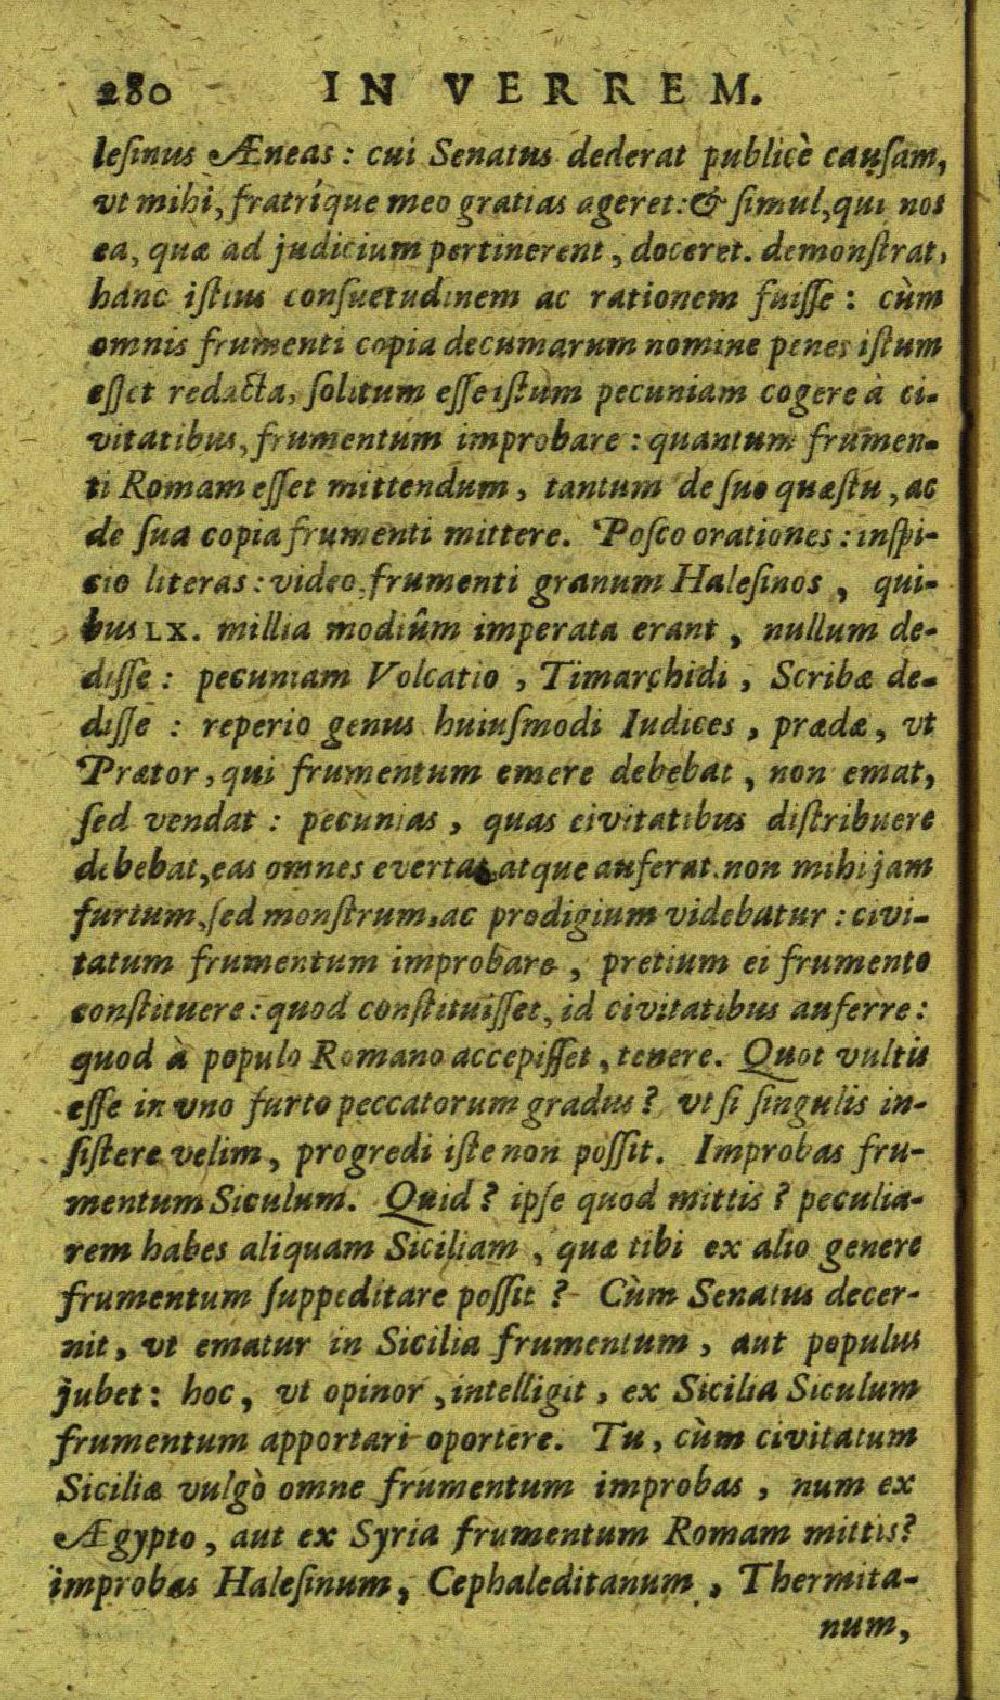 280 IN VERREM.
lesinus Æneas: cui Senatus dederat publicè causam,
vt mihi, fratríque meo gratias ageret: & simul, qui nos
ea, quæ ad judicium pertinerent, doceret. demonstrat,
hanc istius consuetudinem ac rationem fuisse: cùm
omnis frumenti copia decumarum nomine penes istum
esset redacta, solitum esse istum pecuniam cogere à ci-
vitatibus, frumentum improbare: quantum frumen-
ti Romam esset mittendum, tantum de suo quæstu, ac
de sua copia frumenti mittere. Posco orationes: inspi-
cio literas: video, frumenti granum Halesinos, qui-
bus LX. millia modiûm imperata erant, nullum de-
disse: pecuniam Volcatio, Timarchidi, Scribæ de-
disse: reperio genus huiusmodi Iudices, prædæ, vt
Prætor, qui frumentum emere debebat, non emat,
sed vendat: pecunias, quas civitatibus distribuere
debebat, eas omnes evertat atque auferat. non mihi jam
furtum, sed monstrum, ac prodigium videbatur: civi-
tatum frumentum improbare, pretium ei frumento
constituere: quod constituisset, id civitatibus auferre:
quod à populo Romano accepisset, tenere. Quot vultis
esse in vno furto peccatorum gradus? vt si singulis in-
sistere velim, progredi iste non possit. Improbas fru-
mentum Siculum. Quid? ipse quod mittis? peculia-
rem habes aliquam Siciliam, quæ tibi ex alio genere
frumentum suppeditare possit? Cùm Senatus decer-
nit, vt ematur in Sicilia frumentum, aut populus
jubet: hoc, vt opinor, intelligit, ex Sicilia Siculum
frumentum apportari oportere. Tu, cùm civitatum
Siciliæ vulgò omne frumentum improbas, num ex
Ægypto, aut ex Syria frumentum Romam mittis?
improbas Halesinum, Cephaleditanum, Thermita-
num,